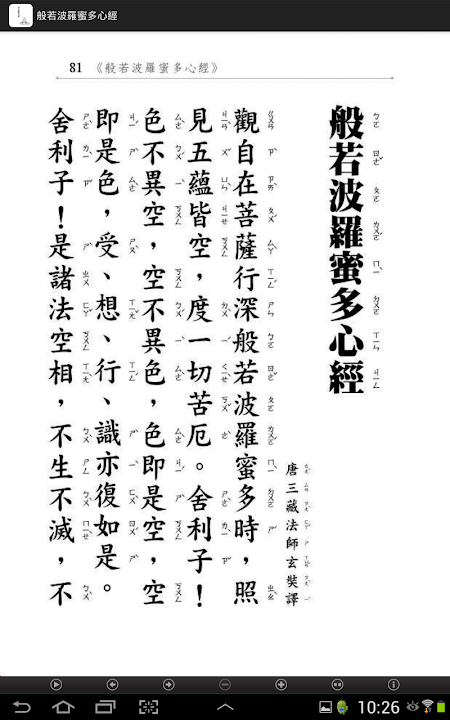 般若波羅蜜多心經
81 《般若波羅蜜多心經》
般若波羅蜜多心經
唐三藏法師玄奘譯
觀自在菩薩行深般若波羅蜜多時，照
見五蘊皆空，度一切苦厄。舍利子！
色不異空，空不異色，色即是空，空
即是色，受、想、行、識亦復如是。
舍利子！是諸法空相，不生不滅，不
10:26